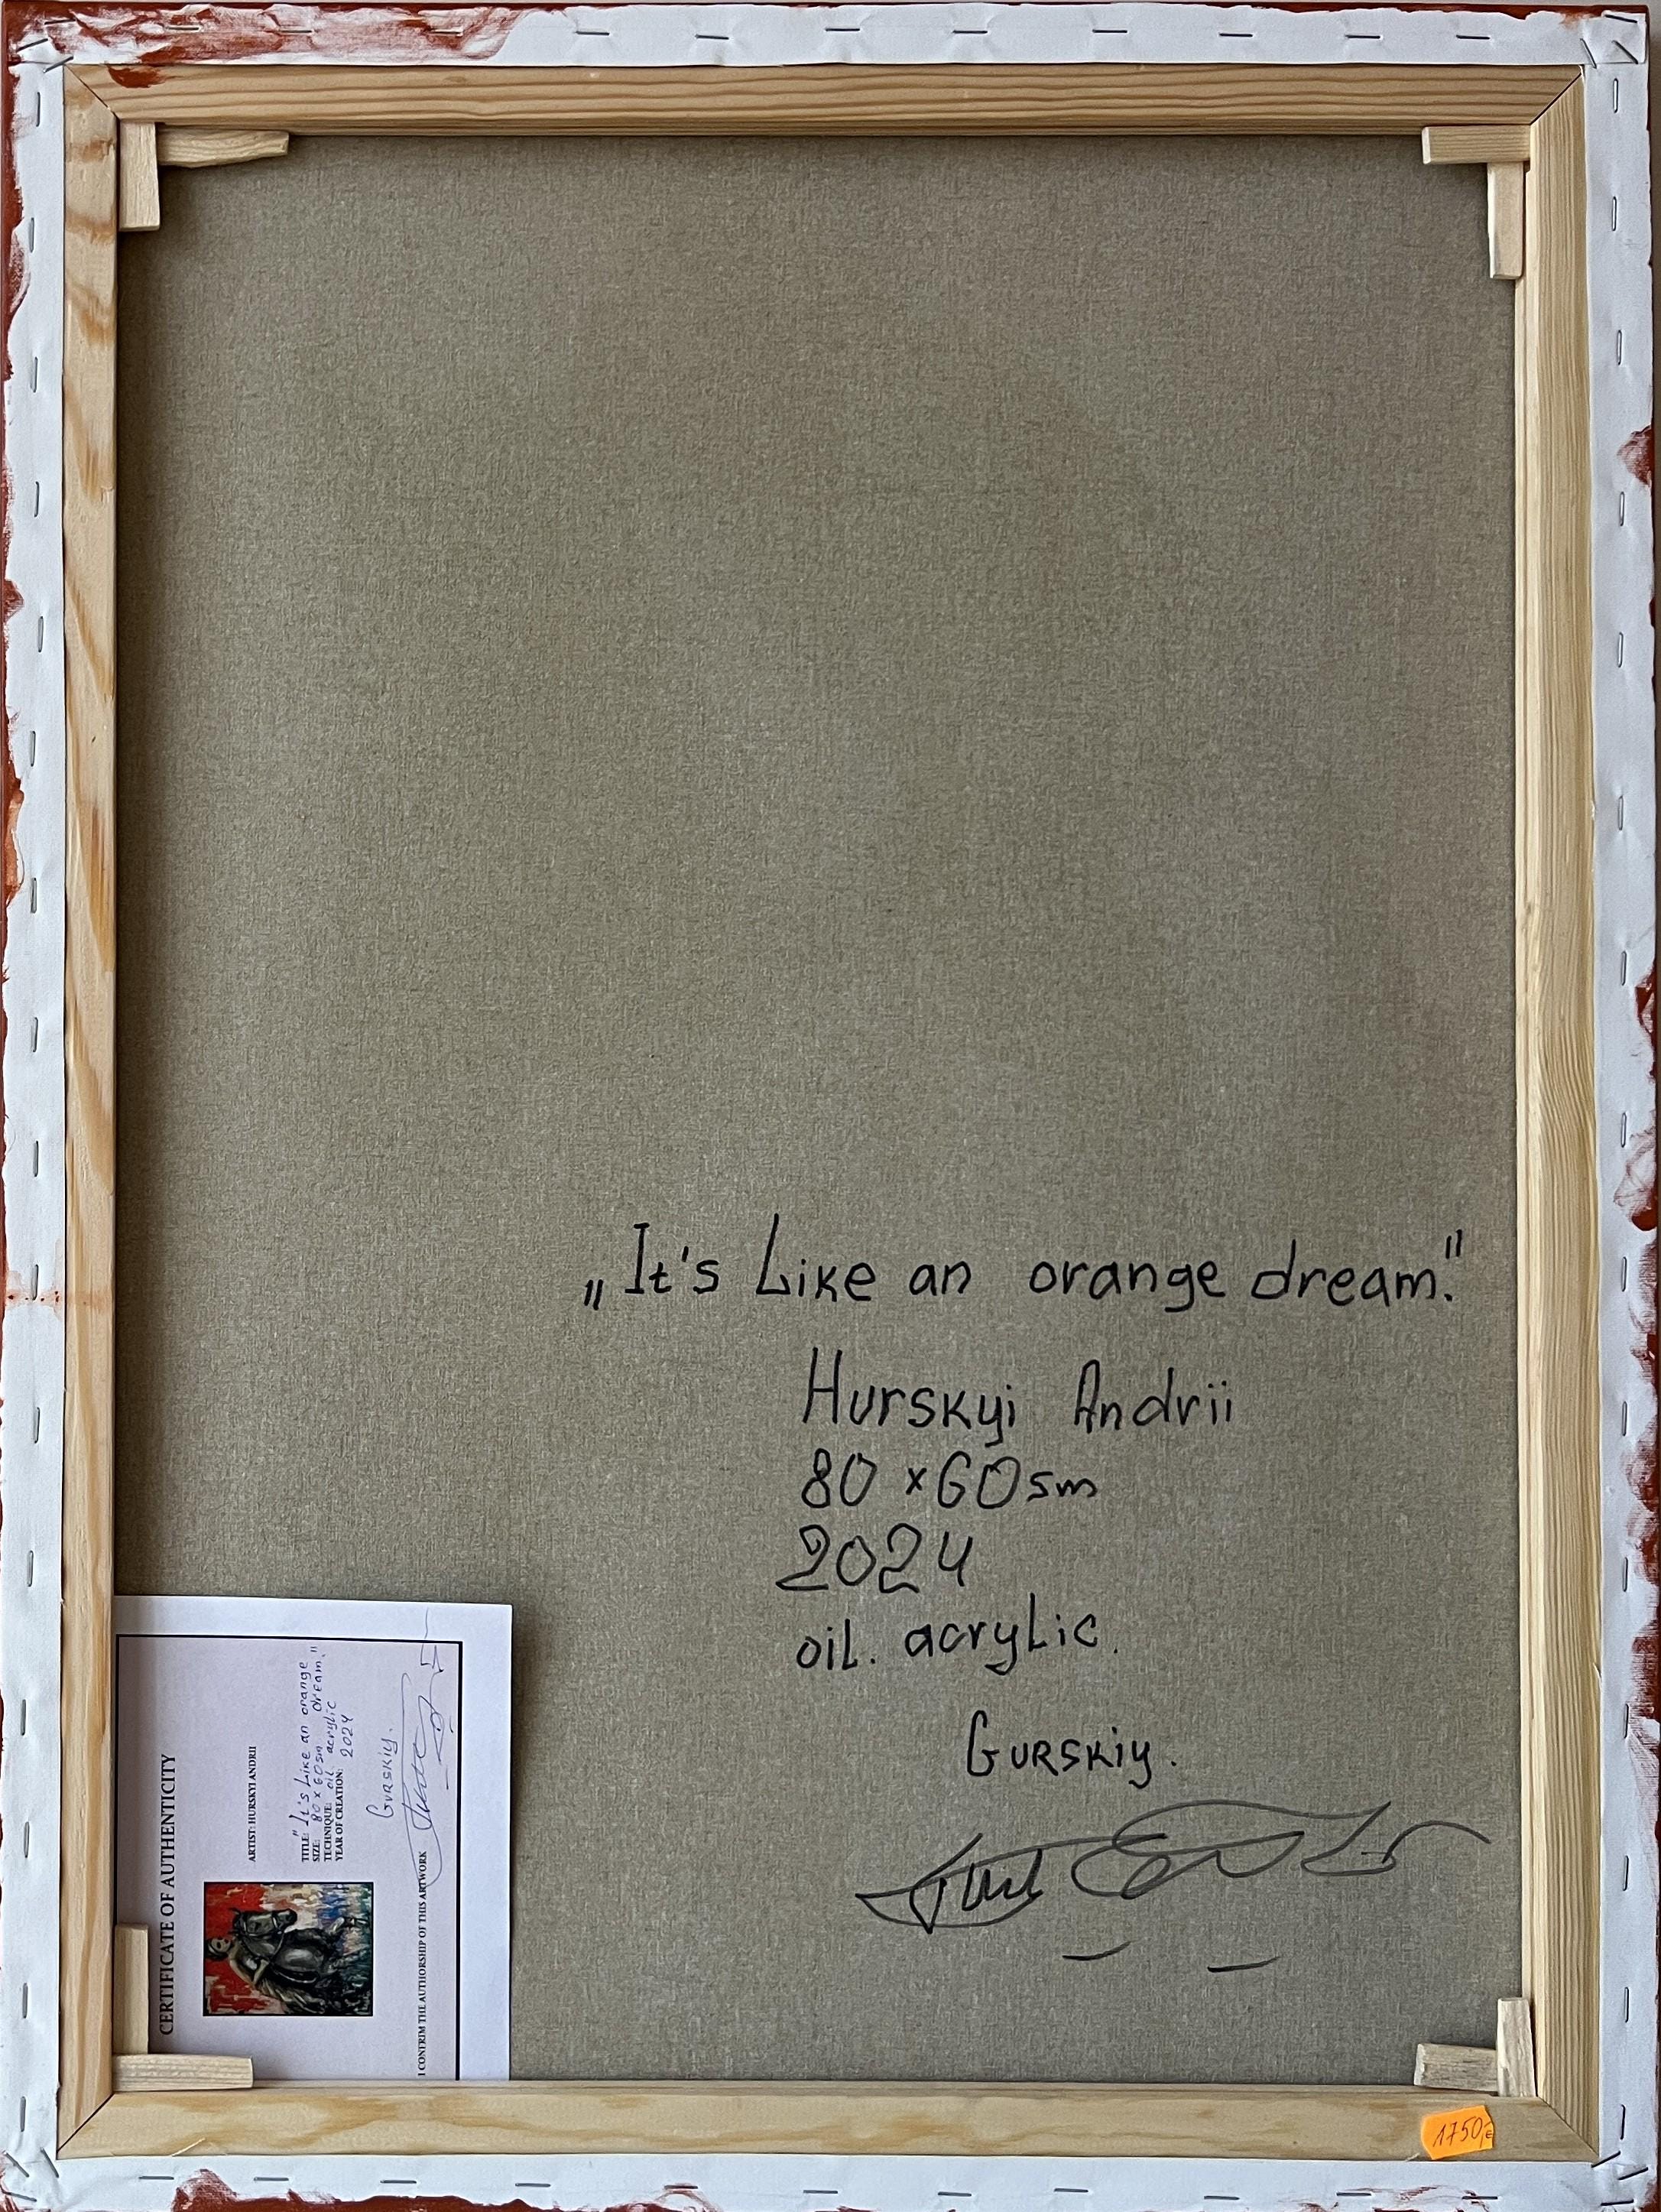 „It's Like an orange dream."
Hurskyi Andrii
80 x 60 sm
2024
oil. acrylic.
Gurskiy.
CERTIFICATE OF AUTHENTICITY
ARTIST: HURSKYI ANDRII
TITLE: "It's Like an orange dream."
SIZE: 80 x 60 sm
TECHNIQUE: oil acrylic
YEAR OF CREATION: 2024
Gurskiy.
I CONFRIM THE AUTHORSHIP OF THIS ARTWORK
1750,€